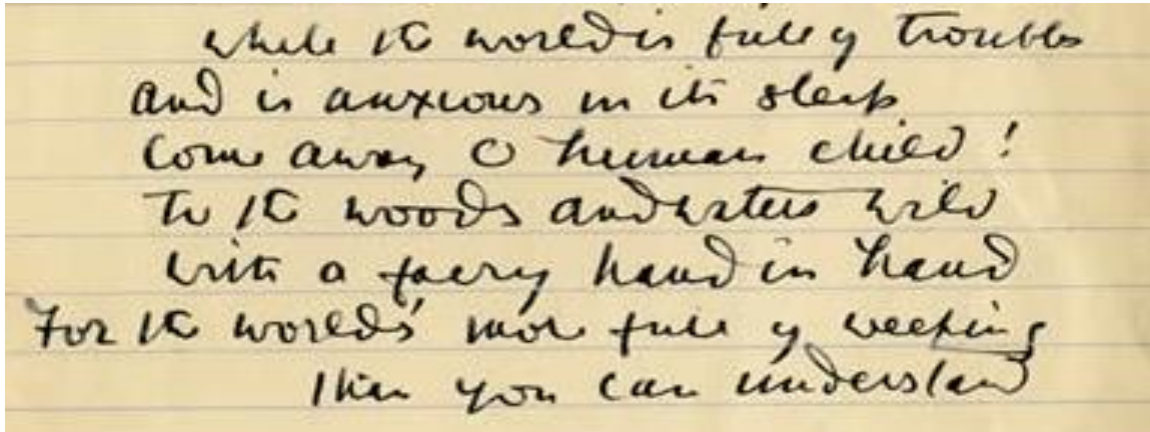 while the world is full of troubles
and is anxious in its sleep
Come away O human child!
To the woods and waters wild
with a faery hand in hand
For the world's more full of weeping
than you can understand